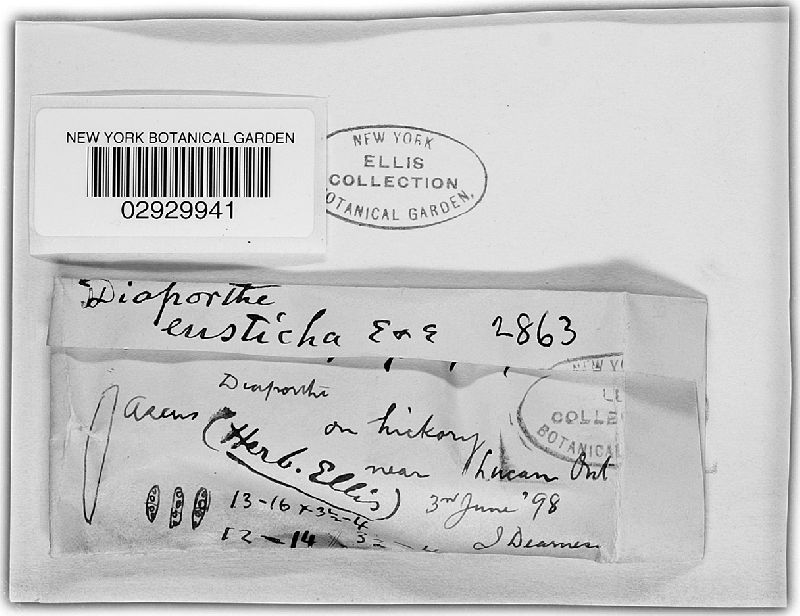 NEW YORK BOTANICAL GARDEN
02929941
NEW YORK
ELLIS
COLLECTION
BOTANICAL GARDEN.
Diaporthe
eusticha E & E 2863
Diaporthe
NEW Y
COLLE
BOTANICAL
Ascus
on hickory
(Herb. Ellis)
near Lucan Ont
13-16 x 3½-4
3rd June '98
12-14
J Dearness